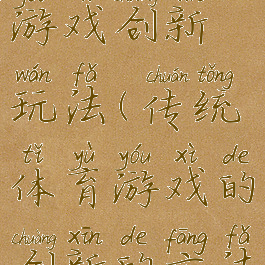 游戏创新
wán fǎ chuán tǒng
玩法(传统
tǐ yù yóu xì de
体育游戏的
chuàng xīn de fāng fǎ
创新的方法